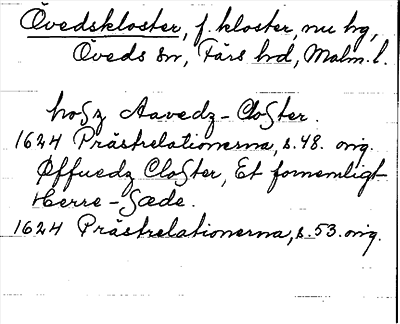 Övedskloster, f. kloster, nu hg,
Öveds sn, Färs hd, Malm. l.
hosz Aavedz-Closzter.
1624 Prästrelationerna, s. 48. orig.
Øffuedz Closzter, Et fornemligt
Herre-Sæde.
1624 Prästrelationerna, s. 53. orig.